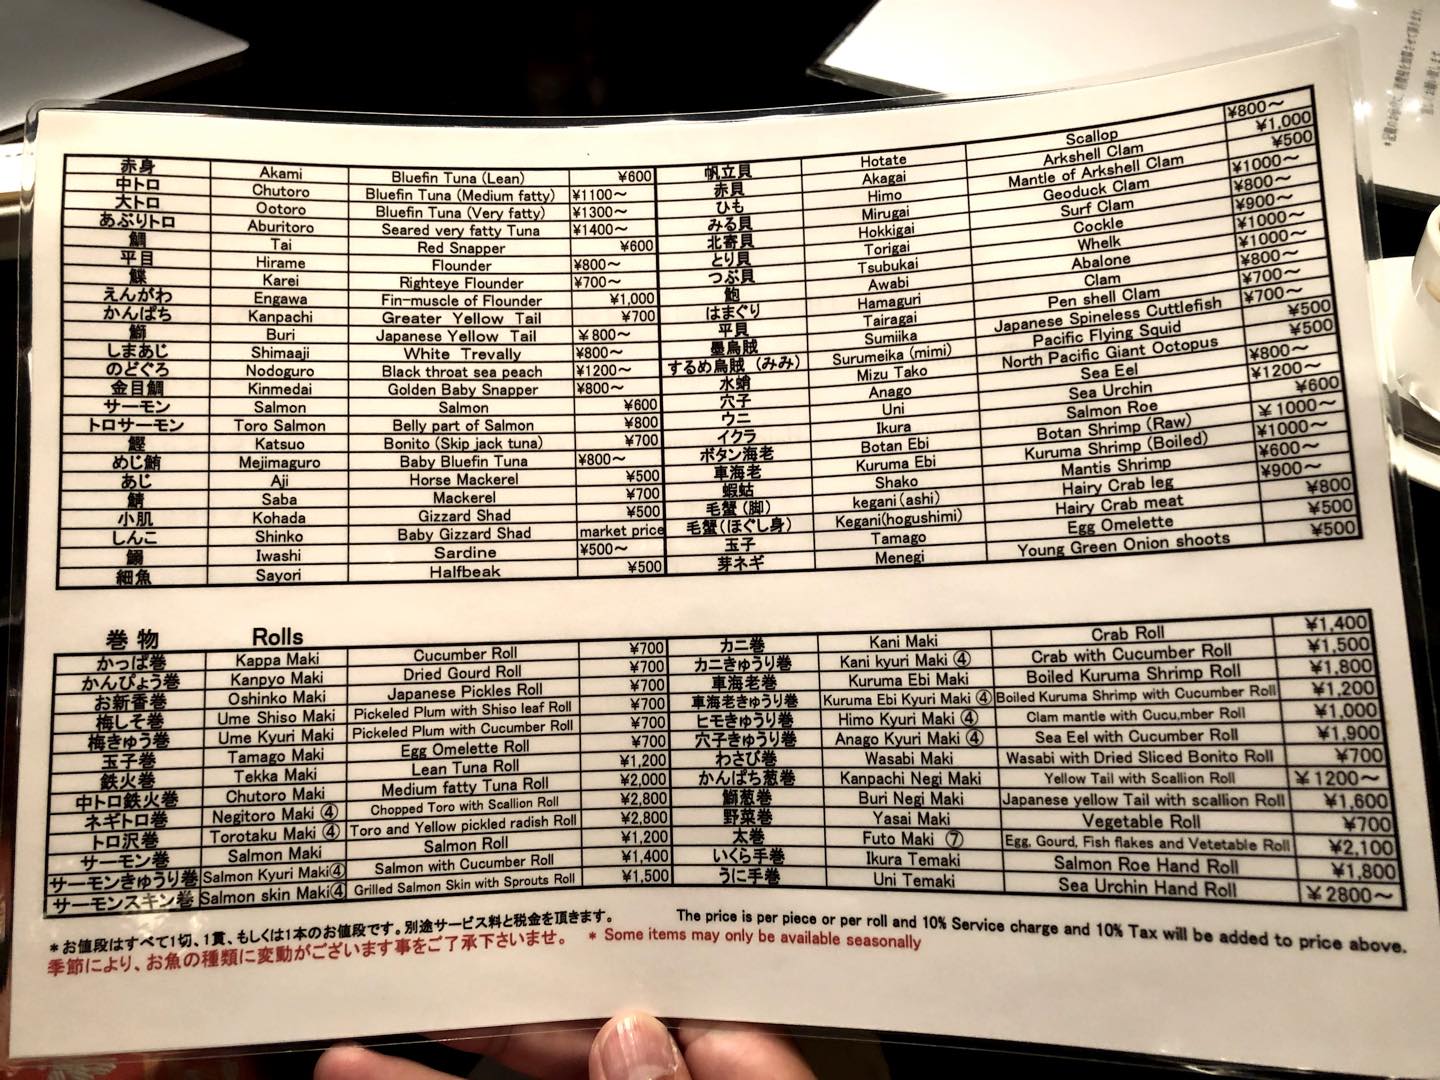 赤身 Akami Bluefin Tuna (Lean) ¥600
中トロ Chutoro Bluefin Tuna (Medium fatty) ¥1100～
大トロ Ootoro Bluefin Tuna (Very fatty) ¥1300～
あぶりトロ Aburitoro Seared very fatty Tuna ¥1400～
鯛 Tai Red Snapper ¥600
平目 Hirame Flounder ¥800～
鰈 Karei Righteye Flounder ¥700～
えんがわ Engawa Fin-muscle of Flounder ¥1,000
かんぱち Kanpachi Greater Yellow Tail ¥700
鰤 Buri Japanese Yellow Tail ¥800～
しまあじ Shimaaji White Trevally ¥800～
のどぐろ Nodoguro Black throat sea peach ¥1200～
金目鯛 Kinmedai Golden Baby Snapper ¥800～
サーモン Salmon Salmon ¥600
トロサーモン Toro Salmon Belly part of Salmon ¥800
鰹 Katsuo Bonito (Skip jack tuna) ¥700
めじ鮪 Mejimaguro Baby Bluefin Tuna ¥800～
あじ Aji Horse Mackerel ¥500
鯖 Saba Mackerel ¥700
小肌 Kohada Gizzard Shad ¥500
しんこ Shinko Baby Gizzard Shad market price
鰯 Iwashi Sardine ¥500～
細魚 Sayori Halfbeak ¥500
帆立貝 Hotate Scallop ¥800～
赤貝 Akagai Arkshell Clam ¥1,000
ひも Himo Mantle of Arkshell Clam ¥500
みる貝 Mirugai Geoduck Clam ¥1000～
北寄貝 Hokkigai Surf Clam ¥800～
とり貝 Torigai Cockle ¥900～
つぶ貝 Tsubukai Whelk ¥1000～
鮑 Awabi Abalone ¥1000～
はまぐり Hamaguri Clam ¥800～
平貝 Tairagai Pen shell Clam ¥700～
墨烏賊 Sumiika Japanese Spineless Cuttlefish ¥700～
するめ烏賊（みみ） Surumeika (mimi) Pacific Flying Squid ¥500
水蛸 Mizu Tako North Pacific Giant Octopus ¥500
穴子 Anago Sea Eel ¥800～
ウニ Uni Sea Urchin ¥1200～
イクラ Ikura Salmon Roe ¥600
ボタン海老 Botan Ebi Botan Shrimp (Raw) ¥1000～
車海老 Kuruma Ebi Kuruma Shrimp (Boiled) ¥1000～
蝦蛄 Shako Mantis Shrimp ¥600～
毛蟹（脚） kegani(ashi) Hairy Crab leg ¥900～
毛蟹（ほぐし身） Kegani(hogushimi) Hairy Crab meat ¥800
玉子 Tamago Egg Omelette ¥500
芽ネギ Menegi Young Green Onion shoots ¥500
巻物 Rolls
かっぱ巻 Kappa Maki Cucumber Roll ¥700
かんぴょう巻 Kanpyo Maki Dried Gourd Roll ¥700
お新香巻 Oshinko Maki Japanese Pickles Roll ¥700
梅しそ巻 Ume Shiso Maki Pickeled Plum with Shiso leaf Roll ¥700
梅きゅう巻 Ume Kyuri Maki Pickeled Plum with Cucumber Roll ¥700
玉子巻 Tamago Maki Egg Omelette Roll ¥700
鉄火巻 Tekka Maki Lean Tuna Roll ¥1,200
中トロ鉄火巻 Chutoro Maki Medium fatty Tuna Roll ¥2,000
ネギトロ巻 Negitoro Maki ④ Chopped Toro with Scallion Roll ¥2,800
トロ沢巻 Torotaku Maki ④ Toro and Yellow pickled radish Roll ¥2,800
サーモン巻 Salmon Maki Salmon Roll ¥1,200
サーモンきゅうり巻 Salmon Kyuri Maki④ Salmon with Cucumber Roll ¥1,400
サーモンスキン巻 Salmon skin Maki④ Grilled Salmon Skin with Sprouts Roll ¥1,500
カニ巻 Kani Maki Crab Roll ¥1,400
カニきゅうり巻 Kani kyuri Maki ④ Crab with Cucumber Roll ¥1,500
車海老巻 Kuruma Ebi Maki Boiled Kuruma Shrimp Roll ¥1,800
車海老きゅうり巻 Kuruma Ebi Kyuri Maki ④ Boiled Kuruma Shrimp with Cucumber Roll ¥1,200
ヒモきゅうり巻 Himo Kyuri Maki ④ Clam mantle with Cucu,mber Roll ¥1,000
穴子きゅうり巻 Anago Kyuri Maki ④ Sea Eel with Cucumber Roll ¥1,900
わさび巻 Wasabi Maki Wasabi with Dried Sliced Bonito Roll ¥700
かんぱち葱巻 Kanpachi Negi Maki Yellow Tail with Scallion Roll ¥1200～
鰤葱巻 Buri Negi Maki Japanese yellow Tail with scallion Roll ¥1,600
野菜巻 Yasai Maki Vegetable Roll ¥700
太巻 Futo Maki ⑦ Egg, Gourd, Fish flakes and Vetetable Roll ¥2,100
いくら手巻 Ikura Temaki Salmon Roe Hand Roll ¥1,800
うに手巻 Uni Temaki Sea Urchin Hand Roll ¥2800～
＊お値段はすべて1切、1貫、もしくは1本のお値段です。別途サービス料と税金を頂きます。 The price is per piece or per roll and 10% Service charge and 10% Tax will be added to price above.
季節により、お魚の種類に変動がございます事をご了承下さいませ。 * Some items may only be available seasonally